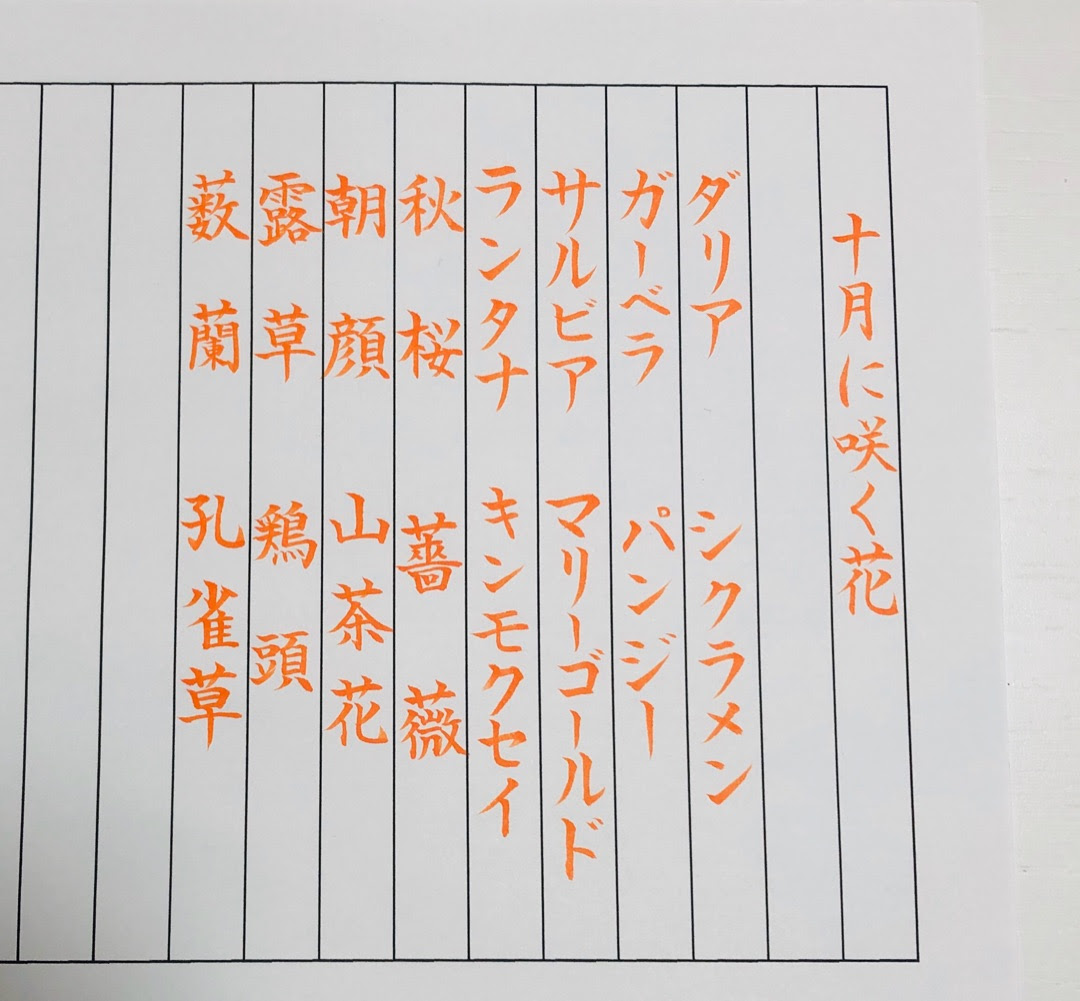 十月に咲く花
ダリア　シクラメン
ガーベラ　パンジー
サルビア　マリーゴールド
ランタナ　キンモクセイ
秋桜　薔薇
朝顔　山茶花
露草　鶏頭
薮蘭　孔雀草